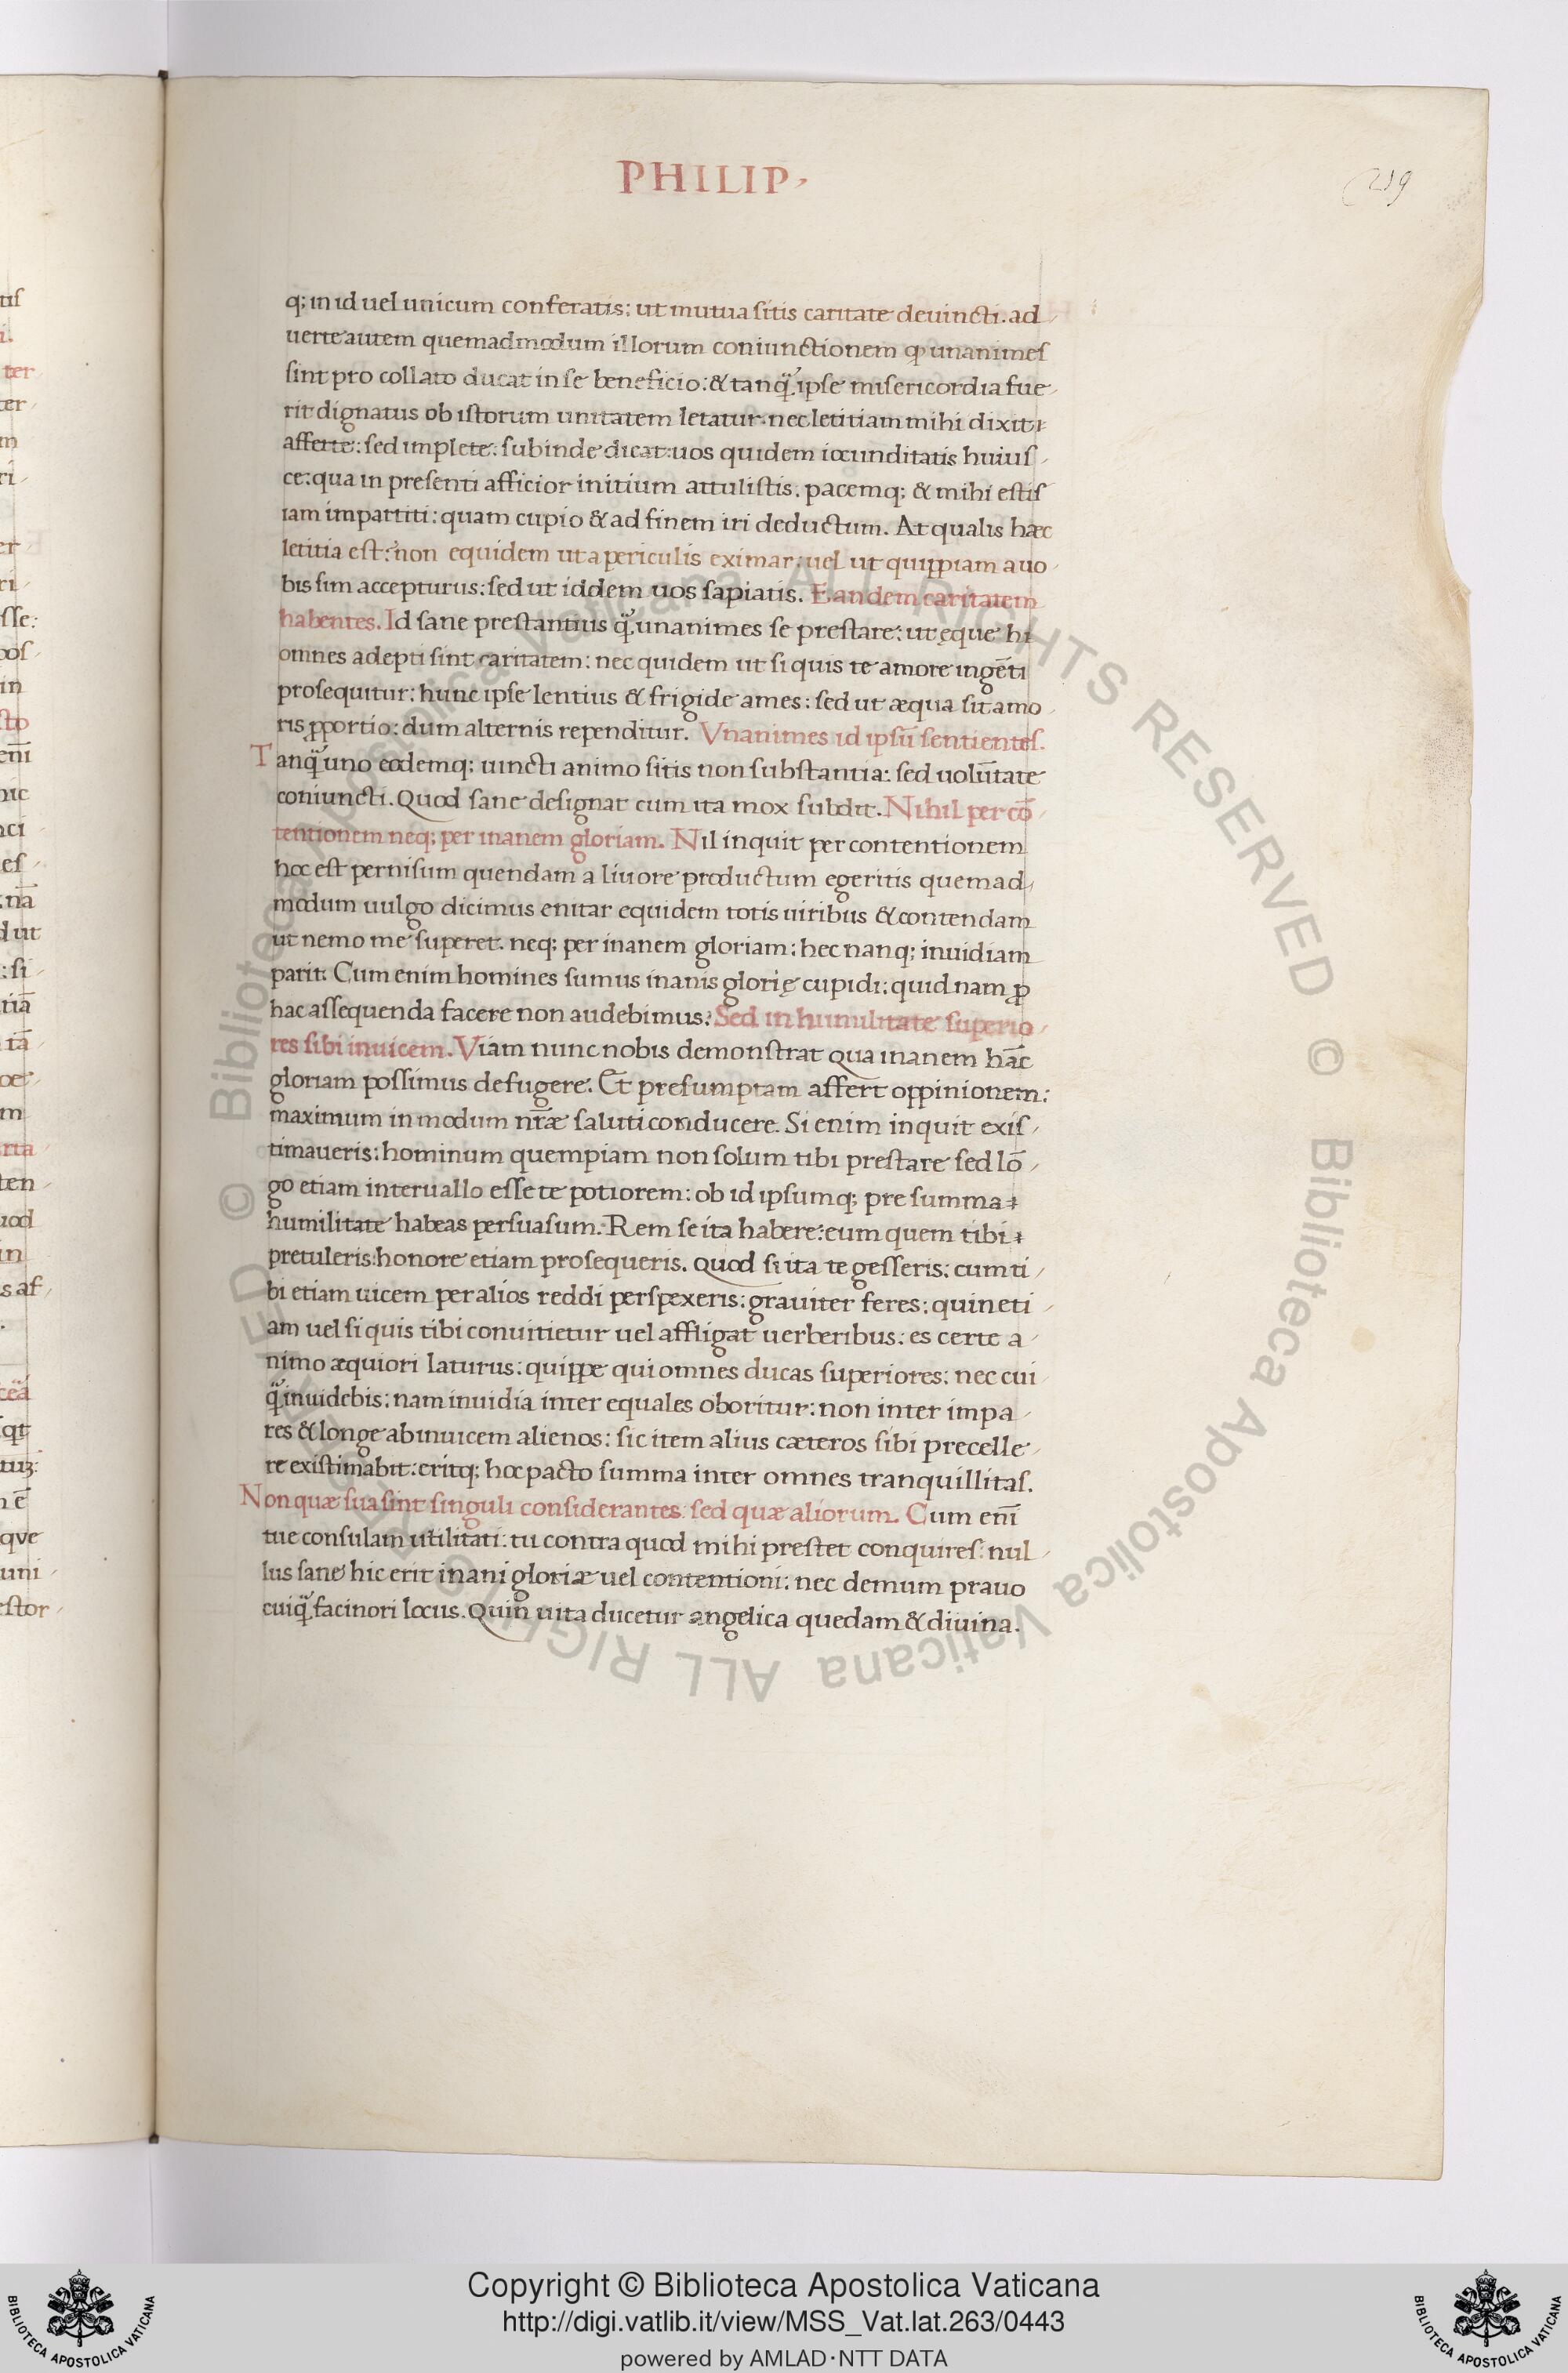 PHILIP.
219
q; in id uel unicum conferatis: ut mutua sitis caritate deuincti. ad
uerte autem quemadmodum illorum coniunctionem ꝙ unanimes
sint pro collato ducat in se beneficio: & tanq̃ ipse misericordia fue
rit dignatus ob istorum unitatem letatur. nec letitiam mihi dixit
afferte: sed implete: subinde dicat: uos quidem iocunditatis huius
ce: qua in presenti afficior initium attulistis. pacemq; & mihi estis
iam impartiti: quam cupio & ad finem iri deductum. At qualis hæc
letitia est? non equidem ut a periculis eximar: uel ut quippiam a uo
bis sim accepturus: sed ut iddem uos sapiatis. Eandem caritatem
habentes. Id sane prestantius q̃ unanimes se prestare: ut ęque hi
omnes adepti sint caritatem: nec quidem ut si quis te amore ingēti
prosequitur: hunc ipse lentius & frigide ames: sed ut æqua sit amo
ris ꝓportio: dum alternis rependitur. Vnanimes id ipsū sentientes.
Tanq̃ uno eodemq; uincti animo sitis non substantia: sed volūtate
coniuncti. Quod sane designat cum ita mox subdit. Nihil per cō
tentionem neq; per inanem gloriam. Nil inquit per contentionem
hoc est per nisum quendam a liuore productum egeritis quemad
modum uulgo dicimus enitar equidem totis uiribus & contendam
ut nemo me superet. neq; per inanem gloriam: hec nanq; inuidiam
parit. Cum enim homines sumus inanis glorię cupidi: quid nam ꝓ
hac assequenda facere non audebimus? Sed in humilitate superio
res sibi inuicem. Viam nunc nobis demonstrat qua inanem hāc
gloriam possimus defugere. Et presumptam affert oppinionem:
maximum in modum nr̄æ saluti conducere. Si enim inquit exis
timaueris: hominum quempiam non solum tibi prestare sed lō
go etiam interuallo esse te potiorem: ob id ipsumq; pre summa
humilitate habeas persuasum. Rem se ita habere: eum quem tibi
pretuleris: honore etiam prosequeris. Quod si ita te gesseris: cum ti
bi etiam uicem per alios reddi perspexeris: grauiter feres: quin eti
am uel si quis tibi conuitietur uel affligat uerberibus: es certe a
nimo æquiori laturus: quippe qui omnes ducas superiores: nec cui
q̃ inuidebis: nam inuidia inter equales oboritur: non inter impa
res & longe ab inuicem alienos: sic item alius cæteros sibi precelle
re existimabit: eritq; hoc pacto summa inter omnes tranquillitas.
Non quæ sua sint singuli considerantes: sed quæ aliorum. Cum eni̅
tue consulam utilitati: tu contra quod mihi prestet conquires: nul
lus sane hic erit inani gloriæ uel contentioni: nec demum prauo
cuiq̃ facinori locus. Quin̄ uita ducetur angelica quedam & diuina.
Copyright © Biblioteca Apostolica Vaticana
http://digi.vatlib.it/view/MSS_Vat.lat.263/0443
powered by AMLAD·NTT DATA
BIBLIOTECA APOSTOLICA VATICANA
BIBLIOTECA APOSTOLICA VATICANA
© Biblioteca Apostolica Vaticana ALL RIGHTS RESERVED © Biblioteca Apostolica Vaticana ALL RIGHTS RESERVED